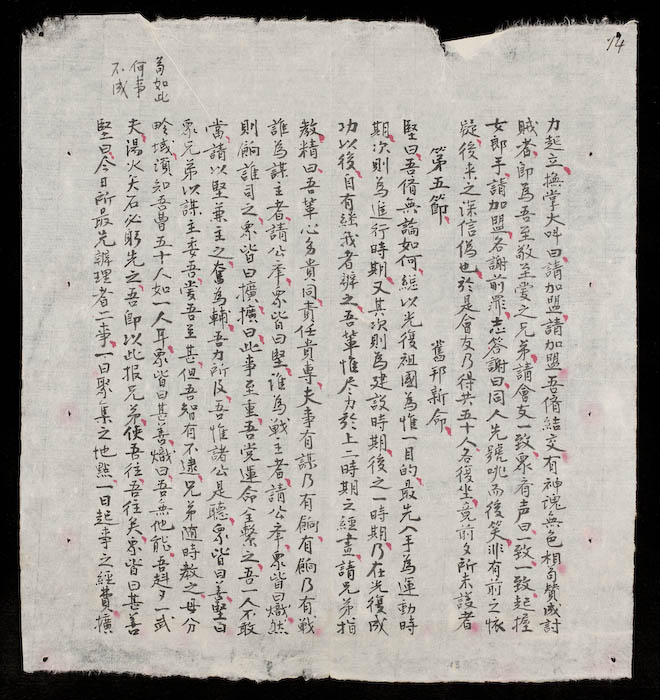 74
力起立撫掌大呌曰請加盟請加盟吾儕結交有神魂無色相苟贊成討
賊者即為吾至敬至愛之兄弟請會友一致衆有声曰一致一致起握
女郎手請加盟名謝前罪志答謝曰同人先號咷而後笑非有前之
疑後來之深信偽也於是會友乃得共五十人各復坐竟前夕所未議者
第五節　舊邦新命
堅曰吾儕無論如何總以光復祖國為惟一目的最先入手為運動時
期次則為進行時期又其次則為建設時期後之一時期乃在光復成
功以後自有經我者辦之吾輩惟尽力於上二時期之經畫請兄弟指
教精曰吾輩心多貴同責任貴專夫事有謀乃有餉有餉乃有戰
誰為謀主者請公举衆皆曰堅誰為戰主者請公举衆皆曰熾然
則餉誰司之衆皆曰擴擴曰此事至重吾党運命全繫之吾一人不敢
當請以堅兼主之奮為輔吾力所及吾惟諸公是聽衆皆曰善堅曰
衆兄弟以謀主委吾愛吾至甚但吾智有不逮兄弟隨時教之毋分
畛域須知吾曹五十人如一人耳衆皆曰甚善熾曰吾無他能吾赳々一武
夫湯火矢石必躬先之吾即以此报兄弟使吾往吾往矣衆皆曰甚善
堅曰今日所最先辦理者二事一曰聚集之地點一曰起事之經費擴
苟如此
何事
不成